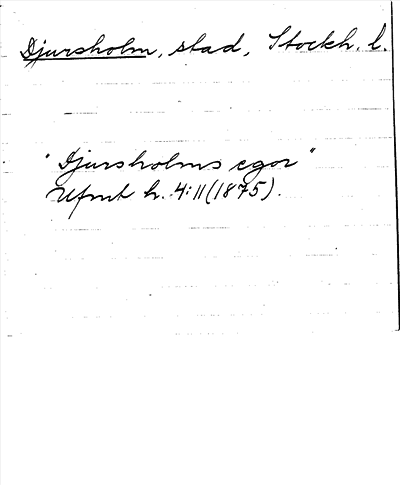 Djursholm, stad, Stockh. l.
"Djursholms egor"
Ufmt h. 4:11 (1875).